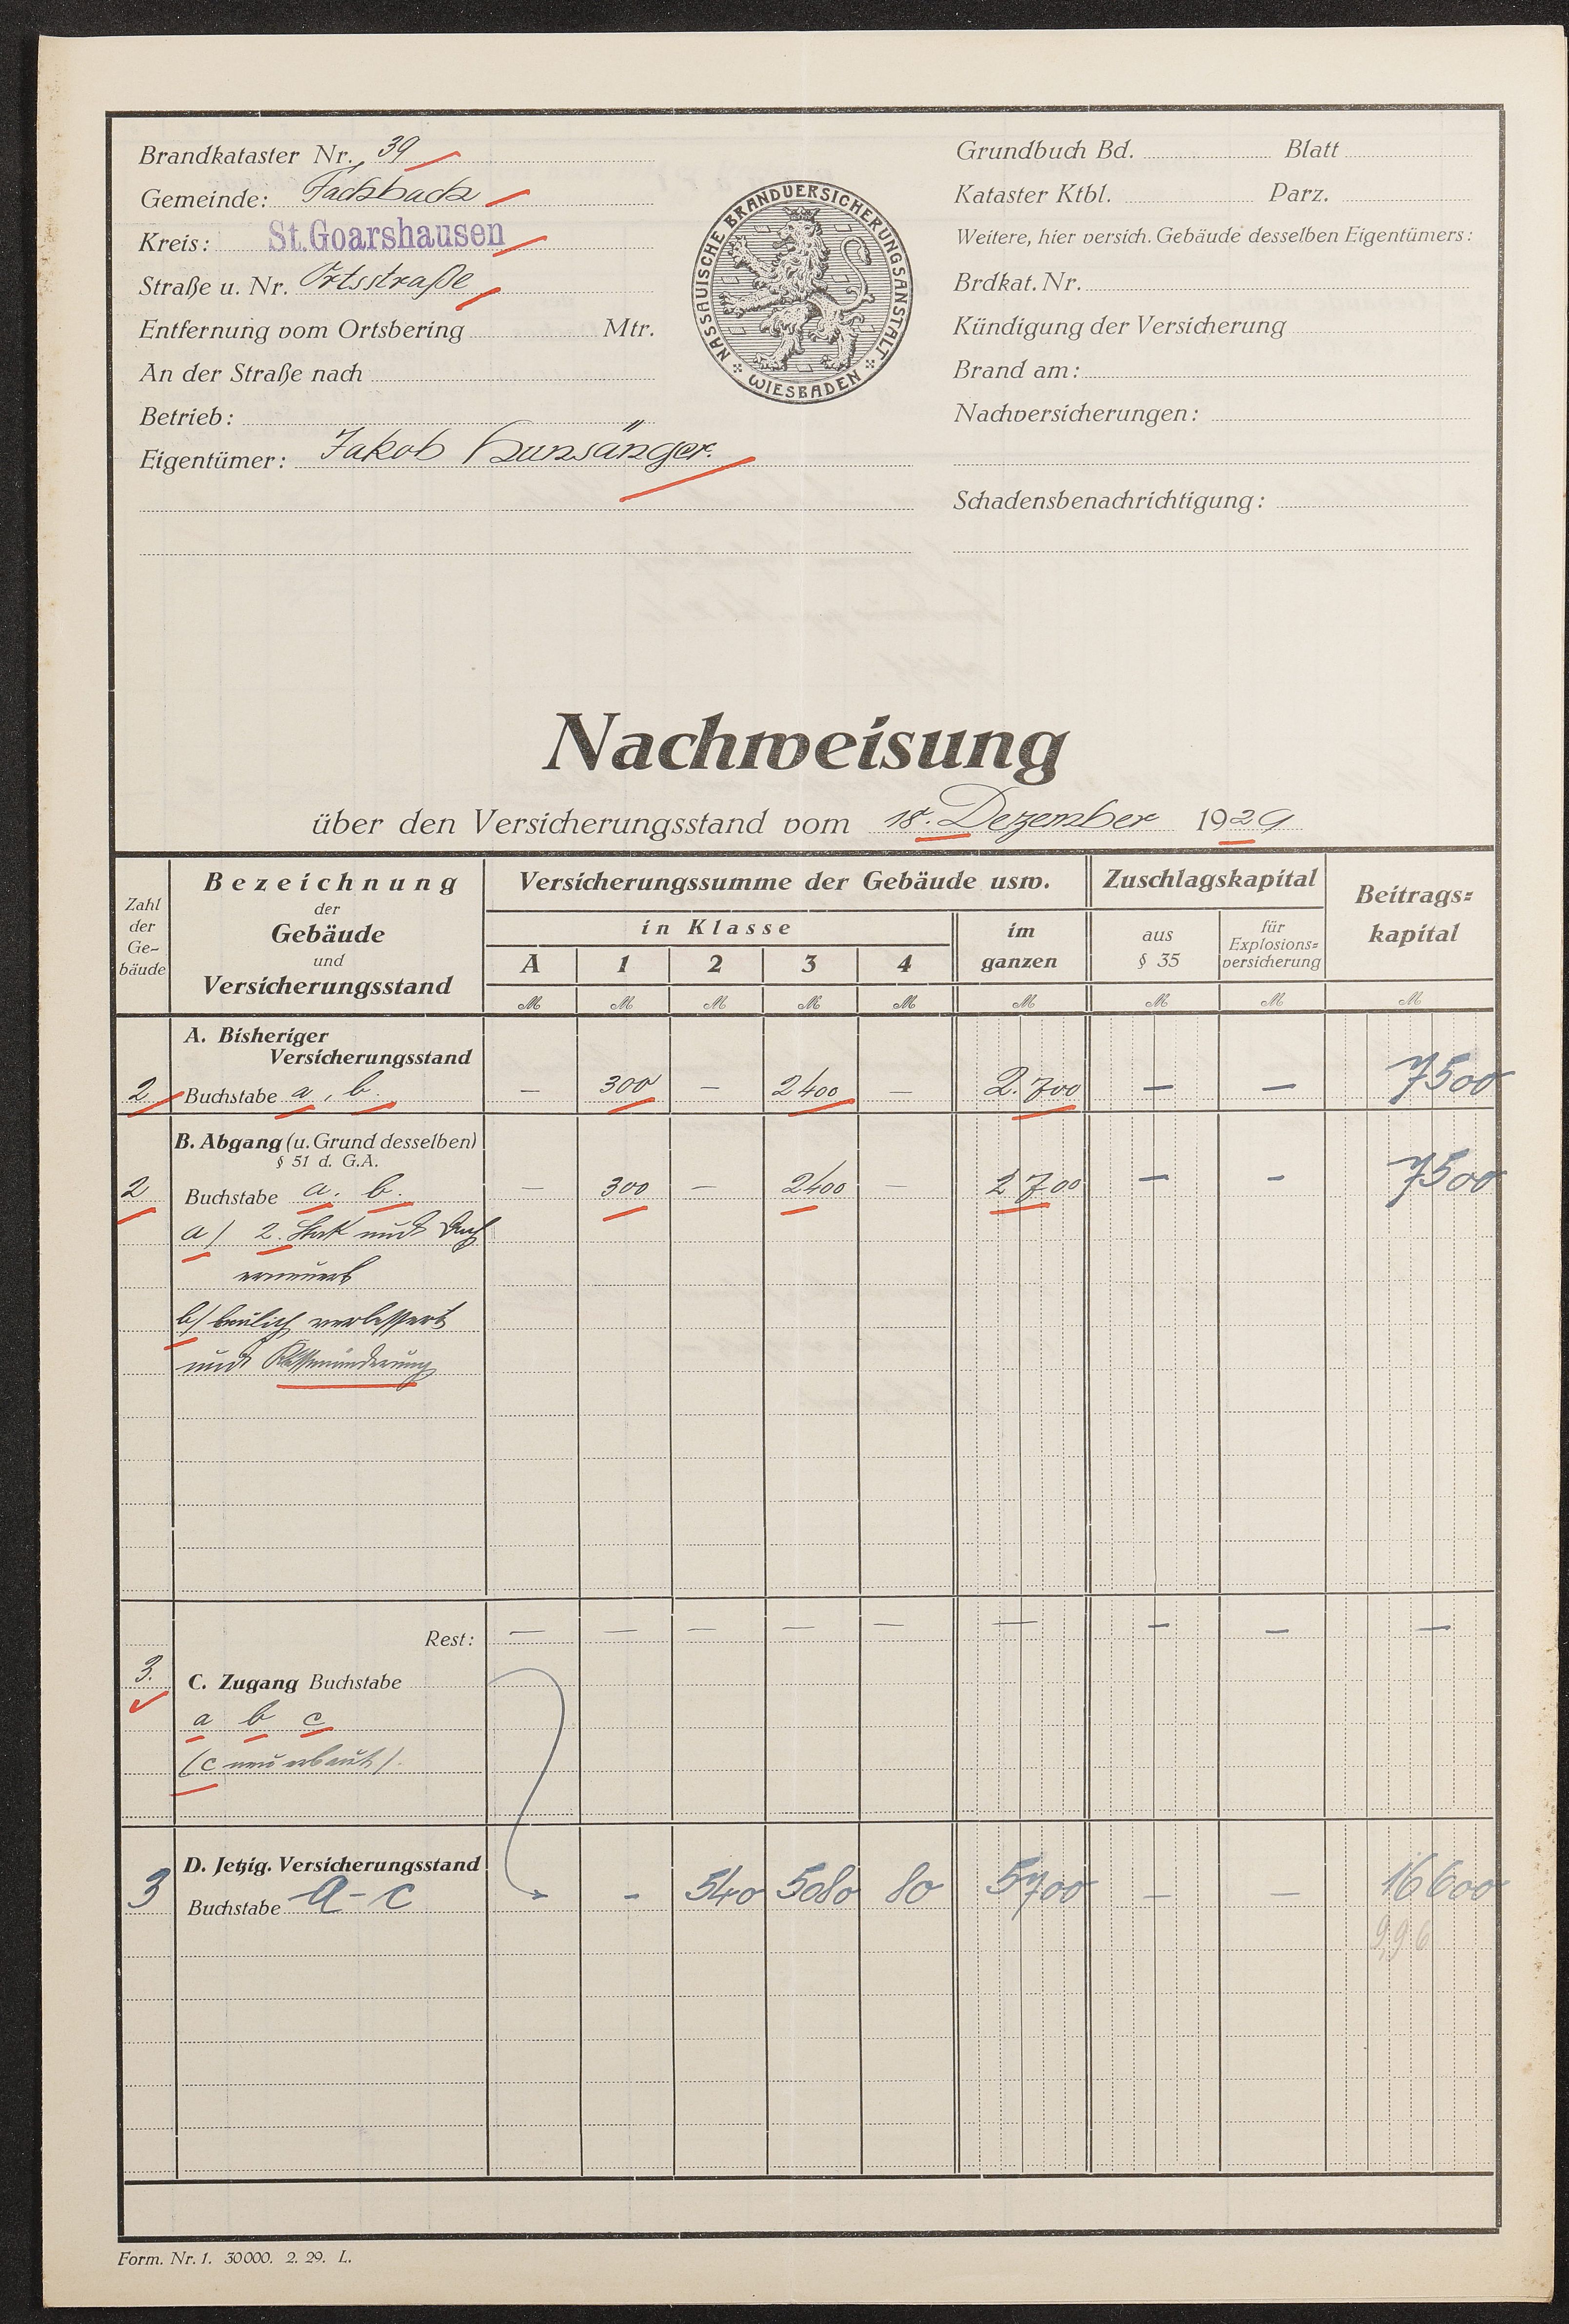 Brandkataster Nr. 39
Gemeinde: Fachbach
Kreis: St.Goarshausen
Straße u. Nr. Ortsstraße
Entfernung vom Ortsbering Mtr.
An der Straße nach
Betrieb:
Eigentümer: Jakob Hunsänger.
NASSAUISCHE BRANDVERSICHERUNGSANSTALT
WIESBADEN
Grundbuch Bd. Blatt
Kataster Ktbl. Parz.
Weitere, hier versich. Gebäude desselben Eigentümers:
Brdkat. Nr.
Kündigung der Versicherung
Brand am:
Nachversicherungen:
Schadensbenachrichtigung:
Nachweisung
über den Versicherungsstand vom 18. Dezember 1929
Zahl der Ge-bäude
Bezeichnung der Gebäude und Versicherungsstand
Versicherungssumme der Gebäude usw.
in Klasse
im ganzen
A 1 2 3 4
Zuschlagskapital
aus § 35
für Explosions=versicherung
Beitrags=kapital
M M M M M M M M M
A. Bisheriger
Versicherungsstand
2 Buchstabe a, b. — 300 — 2400 — 2.700 — — 7500
B. Abgang (u. Grund desselben)
§ 51 d. G.A.
2 Buchstabe a. b. — 300 — 2400 — 2700 — - 7500
a) 2. Stock und Dach
erneuert
b) baulich verbessert
und Klassenänderung
Rest: — — — — — — — — —
3. C. Zugang Buchstabe
a b c
(c neu erbaut).
D. Jetzig. Versicherungsstand
3 Buchstabe a-c - 540 5080 80 5700 — — 16600
9,96
Form. Nr. 1. 30000. 2. 29. L.